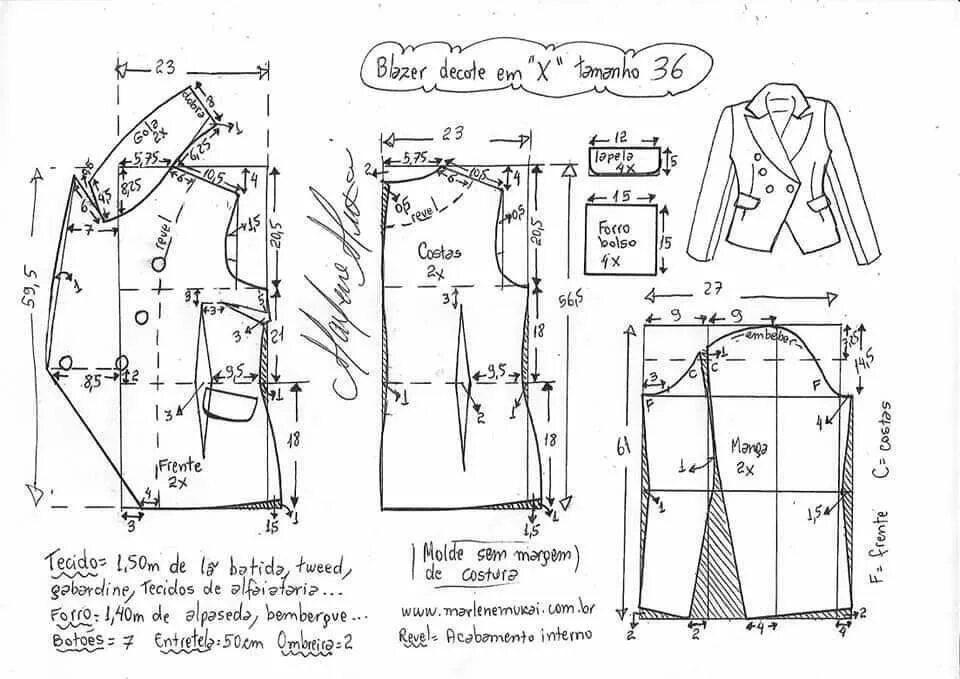 Blazer decote em "X" tamanho 36
23
Gola
2x
dobra
8
1
6,25
5,75
8,25
6
10,5
4
4,5
6
7
revel
1,5
20,5
59,5
1
3
3
5
3
21
8,5
2
9,5
3
1
18
Frente
2x
4
3
1,5
1
23
2
5,75
6
10,5
4
0,5
revel
0,5
20,5
Costas
2x
56,5
3
18
9,5
1
2
1
18
1,5
1
12
lapela
4x
5
15
Forro
bolso
4x
15
27
9
9
embeber
1
C
C
3
F
F
14,5
4
61
Manga
2x
1
1
1,5
2
2
4
4
2
F= frente C= costas
Tecido= 1,50m de lã batida, tweed,
gabardine, Tecidos de alfaiataria...
Forro= 1,40m de alpaseda, bembergue...
Botões= 7 Entretela=50cm Ombreira=2
(Molde sem margem)
de costura
www.marlenemukai.com.br
Revel= Acabamento interno